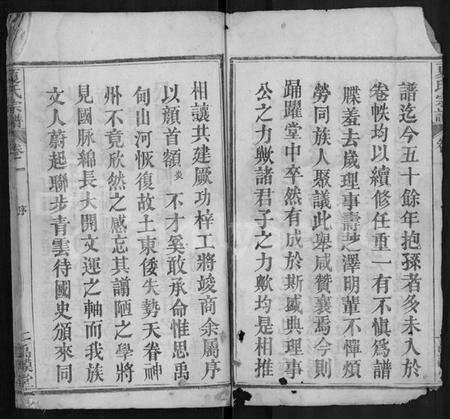 譜迄今五十餘年抱孫者多未入於
卷帙均以續修任重一有不愼爲譜
牒羞去歲理事壽芝澤明輩不憚煩
勞同族人聚議此舉咸贊襄焉今則
踊躍堂中卒然有成於斯感典理事
公之力歟諸君子之力歟均是相推
相讓共建厥功梓工將竣商余屬序
以顏首額 不才奚敢承命惟思禹
甸山河恢復故土東倭失勢天眷神
州不竟欣然之感忘其譾陋之學將
見國脉綿長大開文運之軸而我族
文人蔚起聯步青雲待國史頒來同
夏氏宗譜
卷一
序